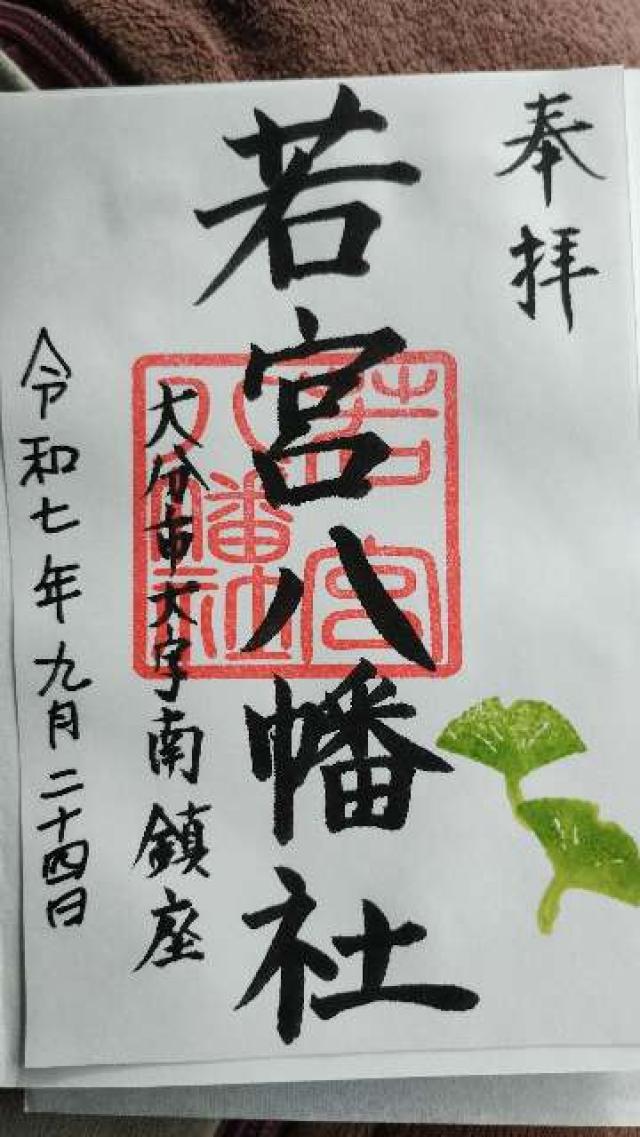 奉拝
若宮八幡社
若宮
八幡社
大分市大字南鎮座
令和七年九月二十四日